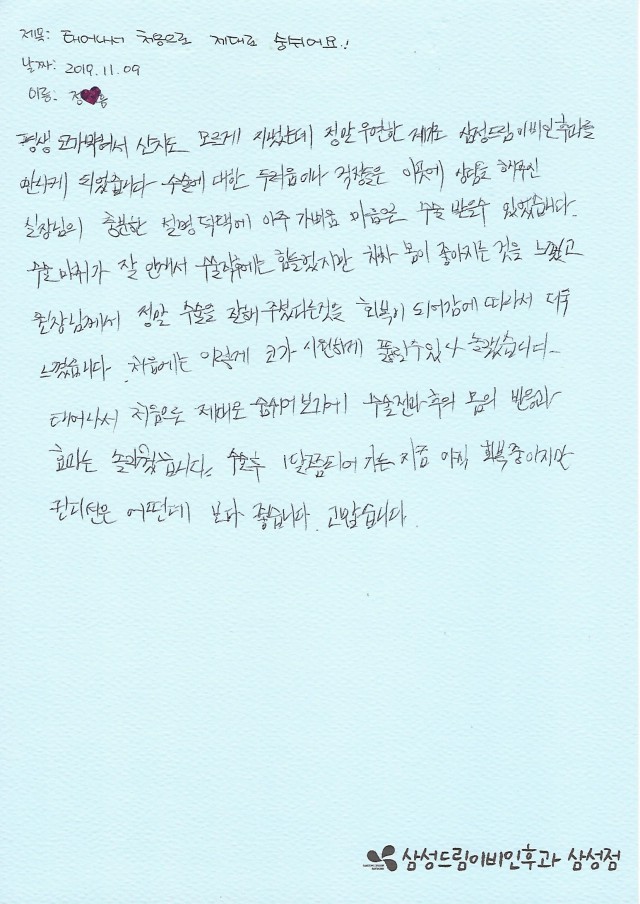 제목: 태어나서 처음으로 제대로 숨쉬어요.!
날짜: 2019.11.09
이름: 정♥용
평생 코가막혀서 산지도 모르게 지냈는데 정말 우연한 계기로 삼성드림이비인후과를
만나게 되었습니다 수술에 대한 두려움이나 걱정들은 이곳에 상담을 해주신
실장님의 충분한 설명덕택에 아주 가벼운 마음으로 수술 받을수 있었습니다.
수술 마취가 잘 안깨서 수술직후에는 힘들었지만 차차 몸이 좋아지는 것을 느꼈고
원장님께서 정말 수술을 잘해주셨다는것을 회복이 되어감에 따라서 더욱
느꼈습니다. 처음에는 이렇게 코가 시원하게 뚫릴수있나 놀랬습니다.
태어나서 처음으로 제대로 숨쉬어보기에 수술전과 후의 몸의 반응과
효과는 놀라웠습니다. 수술후 1달쯤되어 가는 지금 아직 회복중이지만
컨디션은 어떤때 보다 좋습니다. 고맙습니다.
삼성드림이비인후과 삼성점